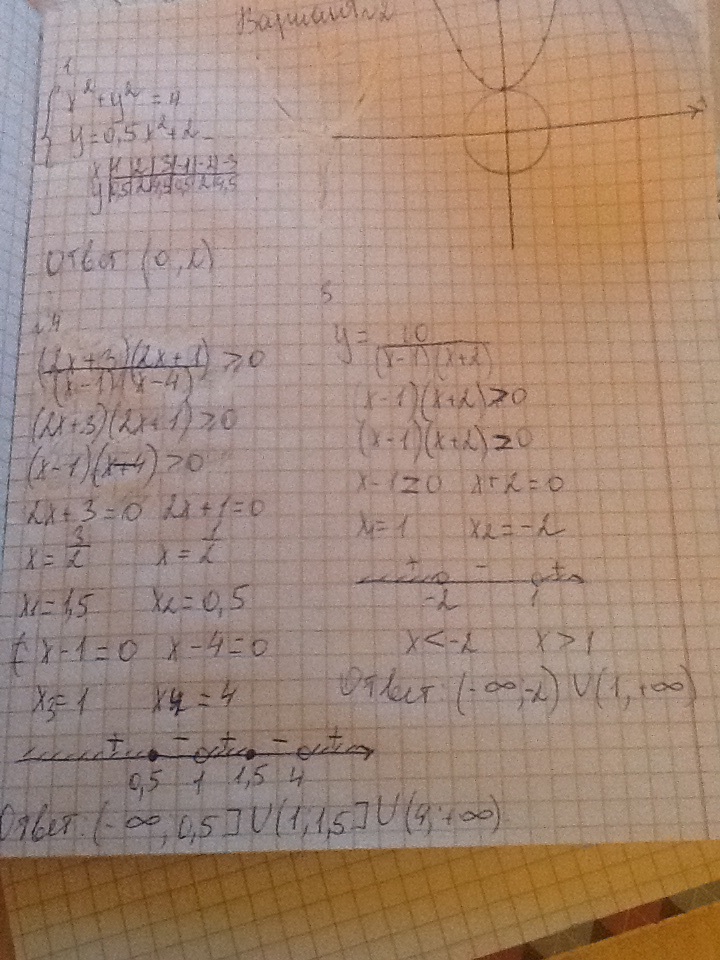 Вариант 2
1
x² + y² = 4
y = 0,5x² + 2
x | 1 | 2 | 3 | -1 | -2 | -3
Ответ (0, 2)
№4
(2x+3)(2x+1) / (x-1)(x-4) ≥ 0
(2x+3)(2x+1) ≥ 0
(x-1)(x-4) > 0
2x+3=0 2x+1=0
x = 3/2 x = 1/2
x₁=1,5 x₂=0,5
x-1=0 x-4=0
x₃=1 x₄=4
+ - + - +
0,5 1 1,5 4
Ответ: (-∞, 0,5] U (1, 1,5] U (4, +∞)
5
y = 10 / (x-1)(x+2)
(x-1)(x+2) > 0
(x-1)(x+2) = 0
x-1=0 x+2=0
x₁=1 x₂=-2
+ - +
-2 1
x<-2 x>1
Ответ: (-∞, -2) U (1, +∞)